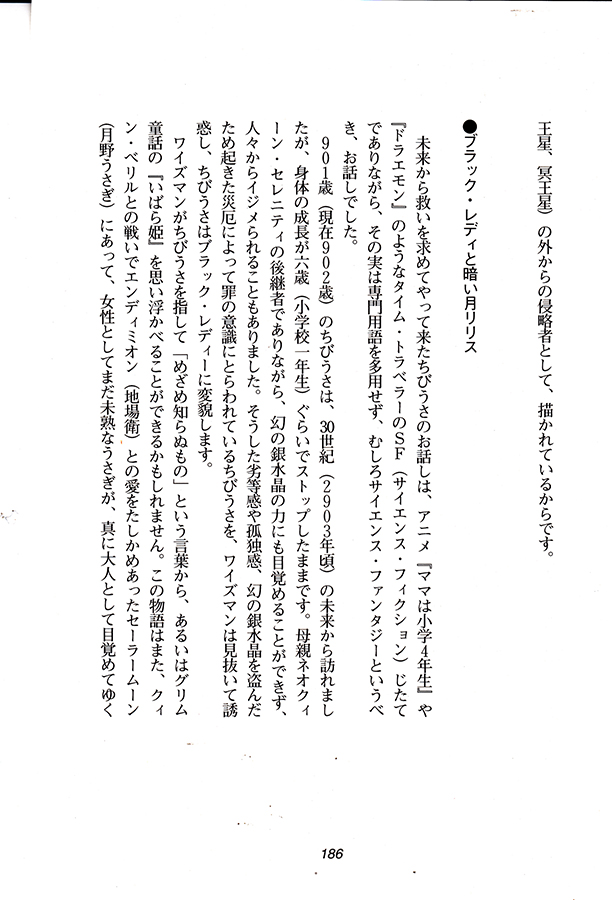 王星、冥王星）の外からの侵略者として、描かれているからです。
●ブラック・レディと暗い月リリス
未来から救いを求めてやって来たちびうさのお話しは、アニメ『ママは小学4年生』や
『ドラエモン』のようなタイム・トラベラーのＳＦ（サイエンス・フィクション）じたて
でありながら、その実は専門用語を多用せず、むしろサイエンス・ファンタジーというべ
き、お話しでした。
９０１歳（現在９０２歳）のちびうさは、30世紀（２９０３年頃）の未来から訪れまし
たが、身体の成長が六歳（小学校一年生）ぐらいでストップしたままです。母親ネオクィ
ーン・セレニティの後継者でありながら、幻の銀水晶の力にも目覚めることができず、
人々からイジメられることもありました。そうした劣等感や孤独感、幻の銀水晶を盗んだ
ため起きた災厄によって罪の意識にとらわれているちびうさを、ワイズマンは見抜いて誘
惑し、ちびうさはブラック・レディーに変貌します。
ワイズマンがちびうさを指して「めざめ知らぬもの」という言葉から、あるいはグリム
童話の『いばら姫』を思い浮かべることができるかもしれません。この物語はまた、クィ
ン・ベリルとの戦いでエンディミオン（地場衛）との愛をたしかめあったセーラームーン
（月野うさぎ）にあって、女性としてまだ未熟なうさぎが、真に大人として目覚めてゆく
186